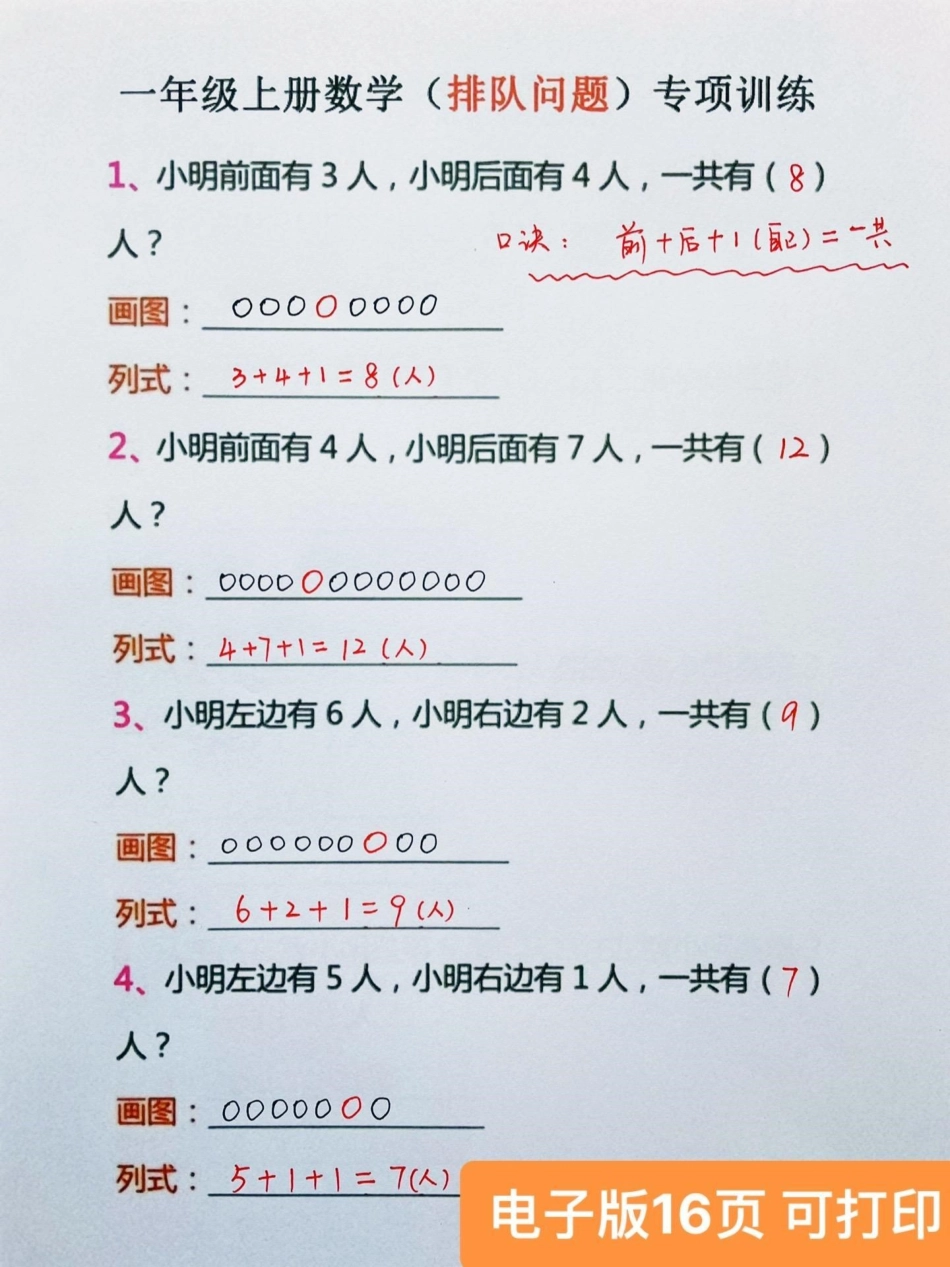 一年级上册数学（排队问题）专项训练
1、小明前面有 3 人，小明后面有 4 人，一共有（8）
人？
口诀：前+后+1(自己)=一共
画图：○○○○○○○○
列式：3+4+1=8(人)
2、小明前面有 4 人，小明后面有 7 人，一共有（12）
人？
画图：○○○○○○○○○○○○
列式：4+7+1=12(人)
3、小明左边有 6 人，小明右边有 2 人，一共有（9）
人？
画图：○○○○○○○○○
列式：6+2+1=9(人)
4、小明左边有 5 人，小明右边有 1 人，一共有（7）
人？
画图：○○○○○○○
列式：5+1+1=7(人)
电子版16页 可打印